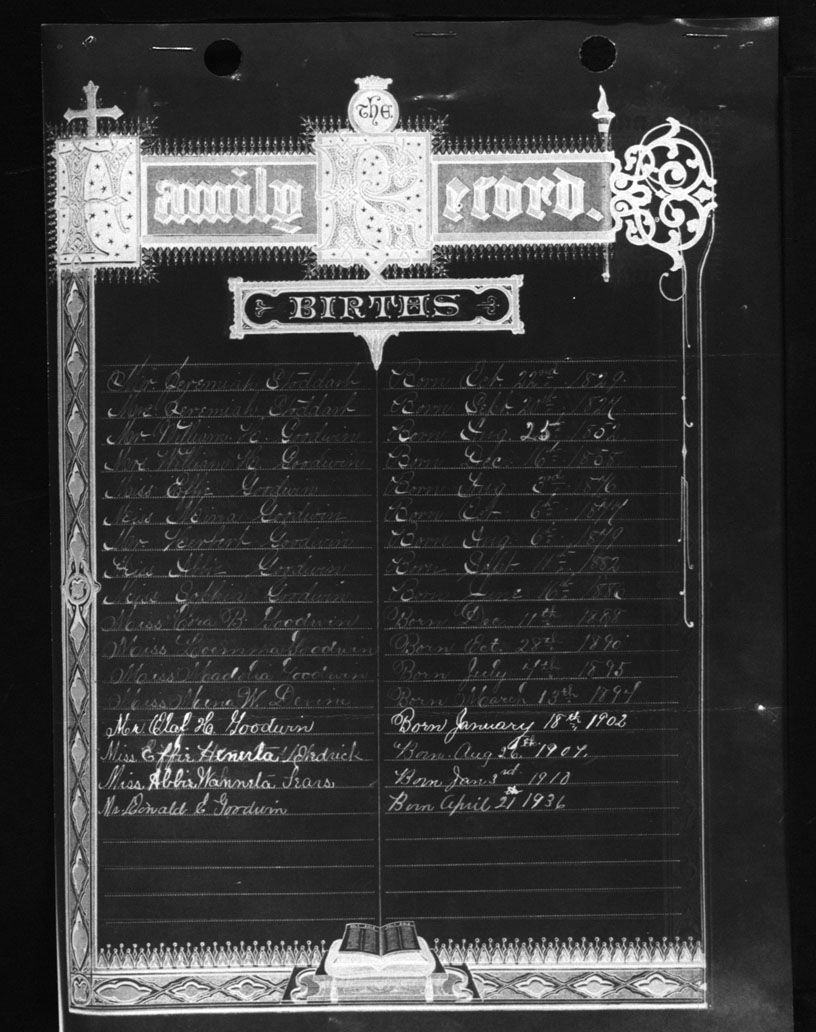 The
Family Record.
BIRTHS
Mr. Jeremiah Stoddard Born Oct 22nd 1829.
Mrs. Jeremiah Stoddard Born Sept 20th 1827
Mr William H. Goodwin Born Aug 25th
Mrs William H. Goodwin Born Dec. 16th
Miss Effie Goodwin Born Aug
Miss Goodwin Born Oct 6th 1877
Mr Herbert Goodwin Born Aug 6th 1879
Miss Abbie Goodwin Born Sept 1882
Miss Goodwin Born June 16th
Miss Eva B. Goodwin Born Dec. 11th 1888
Miss Goodwin Born Oct. 28th 1890
Miss Goodwin Born July 1895
Miss W. Born March 13th 1897
Mr Olaf H. Goodwin Born January 18th 1902
Miss Effie Henerta Diedrick Born Aug 26th 1907.
Miss Abbie Wahneta Sears Born Jan 3rd 1910
Mr Donald E Goodwin Born April 21st 1936